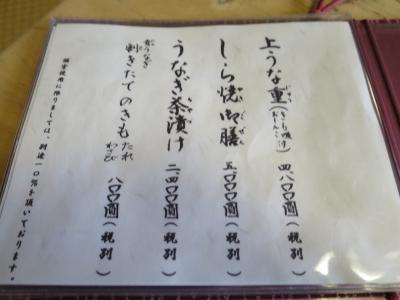 上うな重(きも焼付 おしんこ) 四、八〇〇圓(税別)
しら焼御膳 五、〇〇〇圓(税別)
うなぎ茶漬け 二、四〇〇圓(税別)
割きたてのきも たれ わさび 八〇〇圓(税別)
個室使用に限りましては、別途一〇%を頂いております。